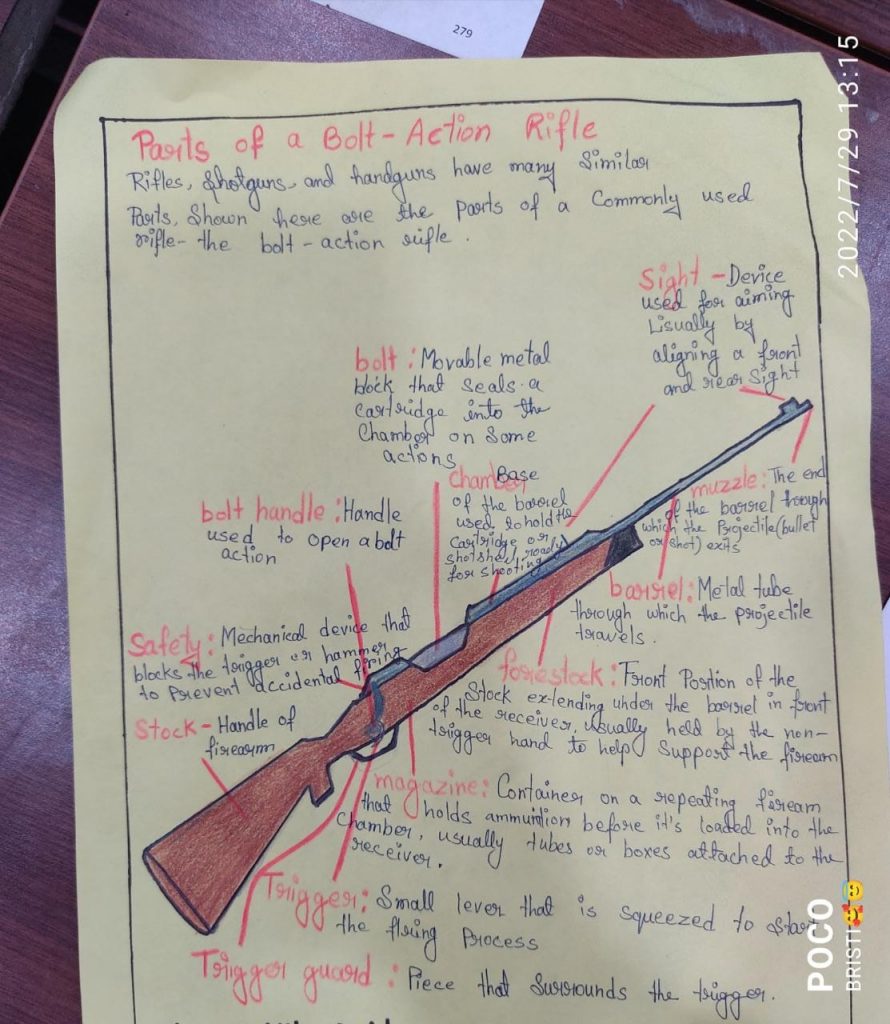 279
2022/7/29 13:15
Parts of a Bolt-Action Rifle
Rifles, Shotguns, and handguns have many Similar
Parts, Shown here are the parts of a Commonly used
rifle- the bolt-action rifle.
Sight - Device
used for aiming
Lisually by
aligning a front
and rear Sight
bolt : Movable metal
block that Seals a
Cartridge into the
Chamber on Some
actions
Chamber Base
of the barrel
used to hold the
Cartridge or
shotshell ready
for shooting
muzzle: The end
of the barrel through
which the Projectile (bullet
or shot) exits
bolt handle : Handle
used to open a bolt
action
barrel: Metal tube
through which the projectile
travels.
Safety: Mechanical device that
blocks the trigger or hammer
to prevent accidental firing
forestock: Front Portion of the
Stock extending under the barrel in front
of the receiver, usually held by the non-
trigger hand to help Support the firearm
Stock - Handle of
firearm
magazine: Container on a repeating fiream
that holds ammunition before it's loaded into the
Chamber, usually tubes or boxes attached to the
receiver.
Trigger: Small lever that is squeezed to start
the firing Process
Trigger guard : Piece that Surrounds the trigger.
POCO
BRISTI